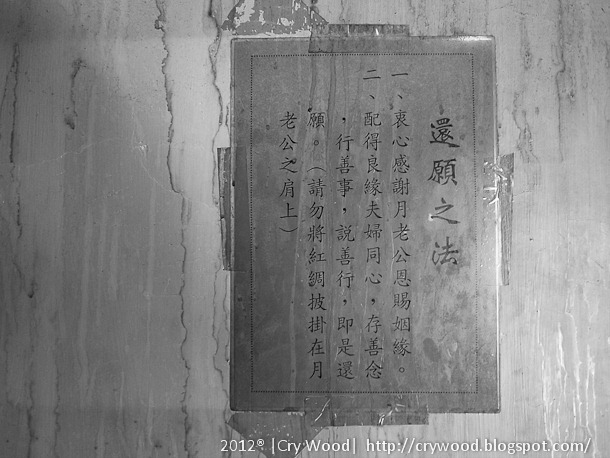 還願之法
一、衷心感謝月老公恩賜姻緣。
二、配得良緣夫婦同心，存善念
，行善事，說善行，即是還
願。（請勿將紅綢披掛在月
老公之肩上）
2012® |Cry Wood| http://crywood.blogspot.com/